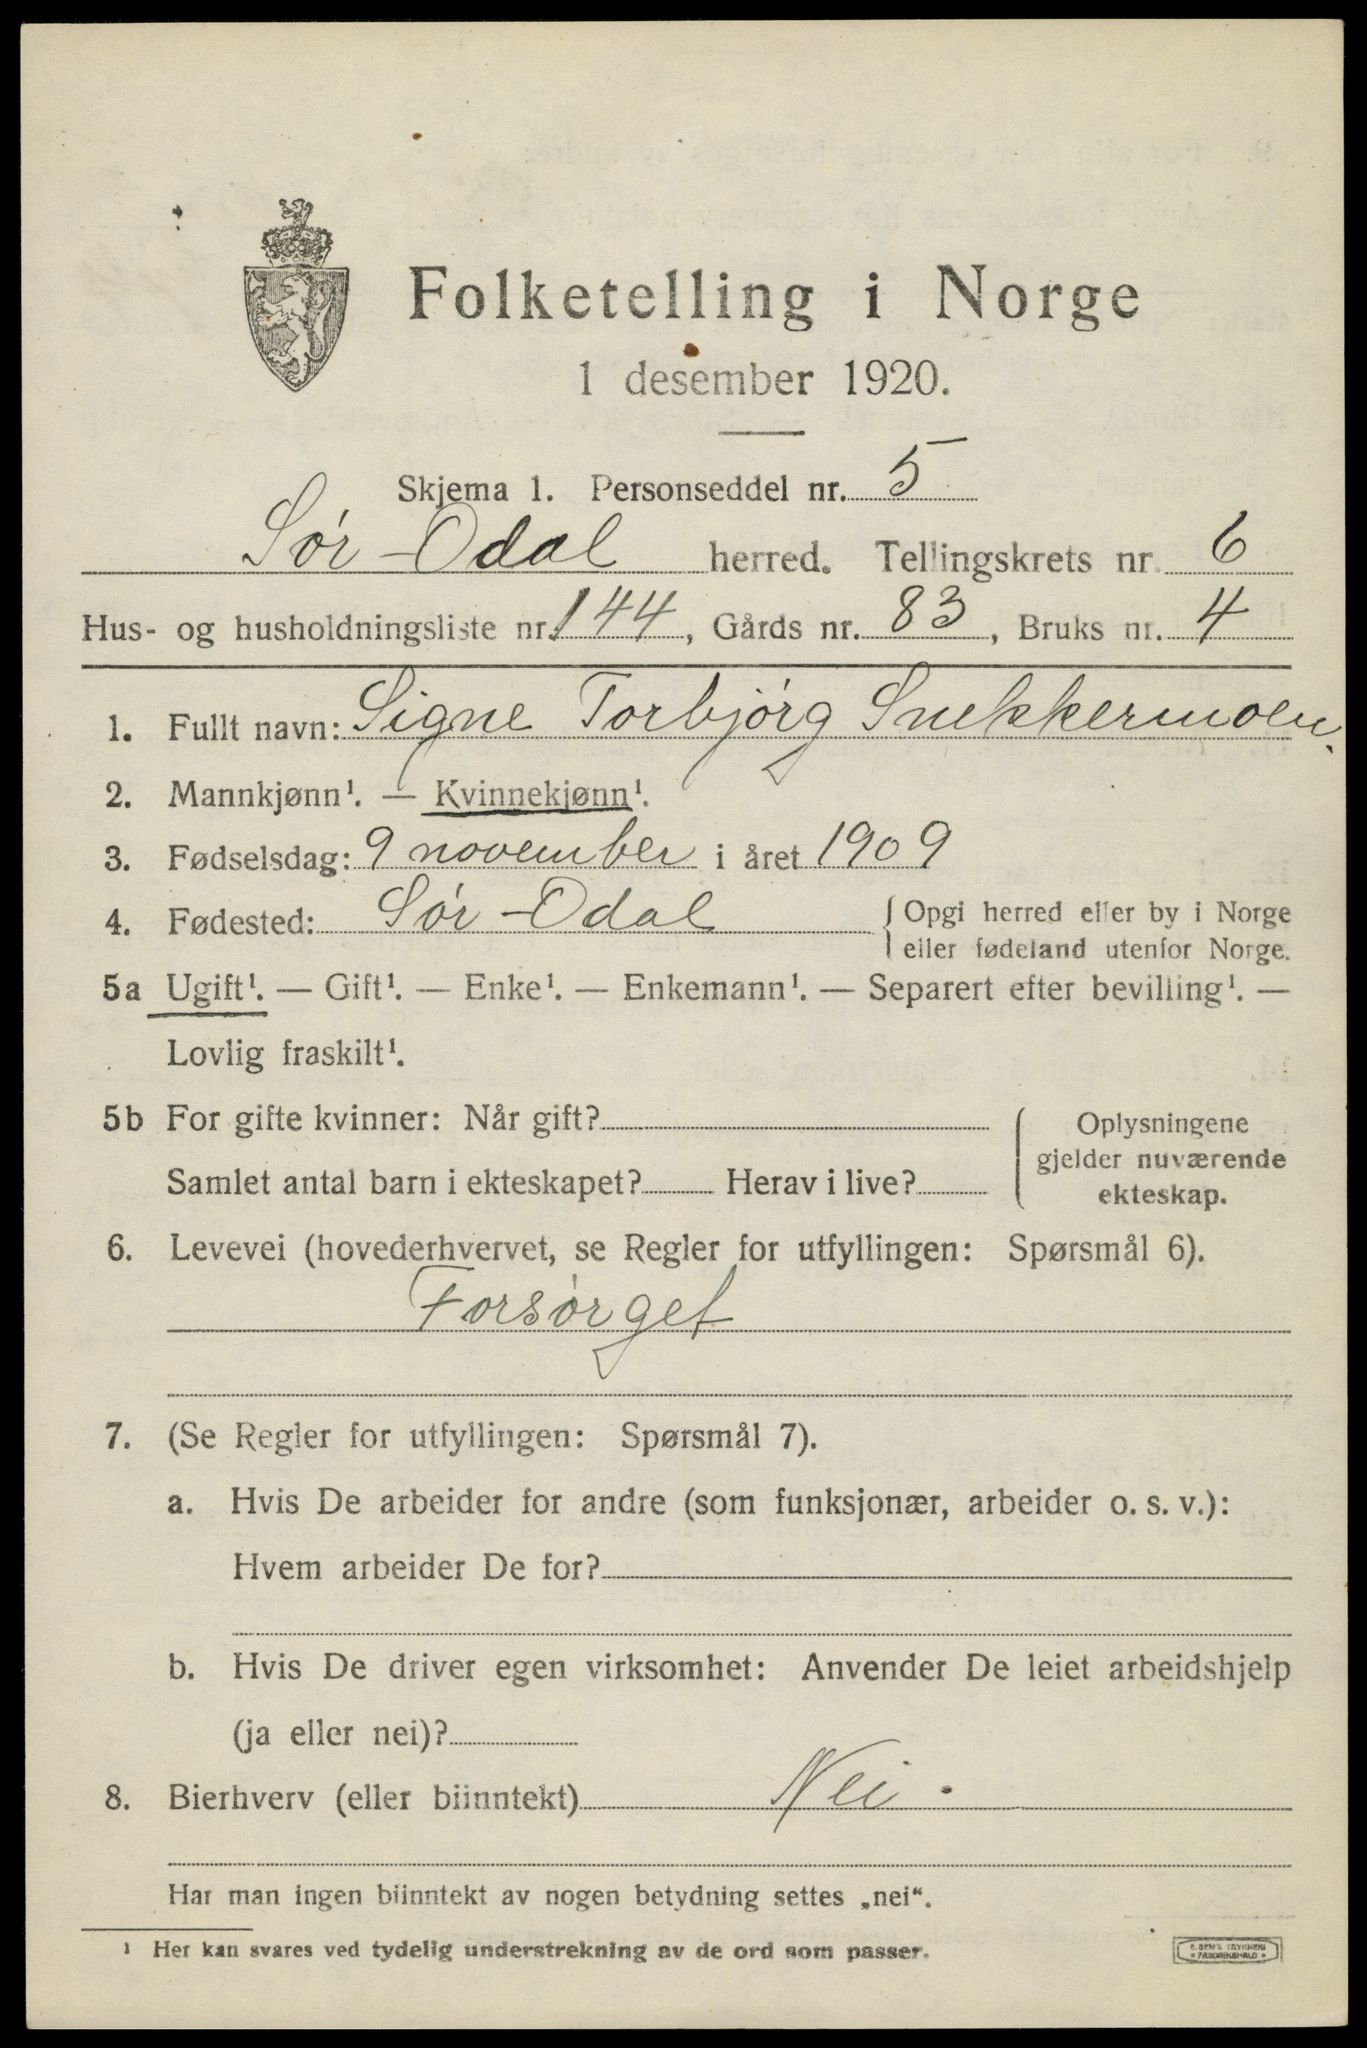 Folketelling i Norge
1 desember 1920.
Skjema 1. Personseddel nr. 5
Sør-Odal herred. Tellingskrets nr. 6
Hus- og husholdningsliste nr. 144, Gårds nr. 83, Bruks nr. 4
1. Fullt navn: Signe Torbjørg Snekkermoen.
2. Mannkjønn¹. — Kvinnekjønn¹.
3. Fødselsdag: 9 november i året 1909
4. Fødested: Sør-Odal { Opgi herred eller by i Norge
eller fødeland utenfor Norge.
5a Ugift¹. — Gift¹. — Enke¹. — Enkemann¹. — Separert efter bevilling¹. —
Lovlig fraskilt¹.
5b For gifte kvinner: Når gift?
Samlet antal barn i ekteskapet? Herav i live?
Oplysningene
gjelder nuværende
ekteskap.
6. Levevei (hovederhvervet, se Regler for utfyllingen: Spørsmål 6).
Forsørget
7. (Se Regler for utfyllingen: Spørsmål 7).
a. Hvis De arbeider for andre (som funksjonær, arbeider o. s. v.):
Hvem arbeider De for?
b. Hvis De driver egen virksomhet: Anvender De leiet arbeidshjelp
(ja eller nei)?
8. Bierhverv (eller biinntekt) Nei.
Har man ingen biinntekt av nogen betydning settes „nei“.
¹ Her kan svares ved tydelig understrekning av de ord som passer.
E. SEM'S TRYKKERI
FREDRIKSHALD